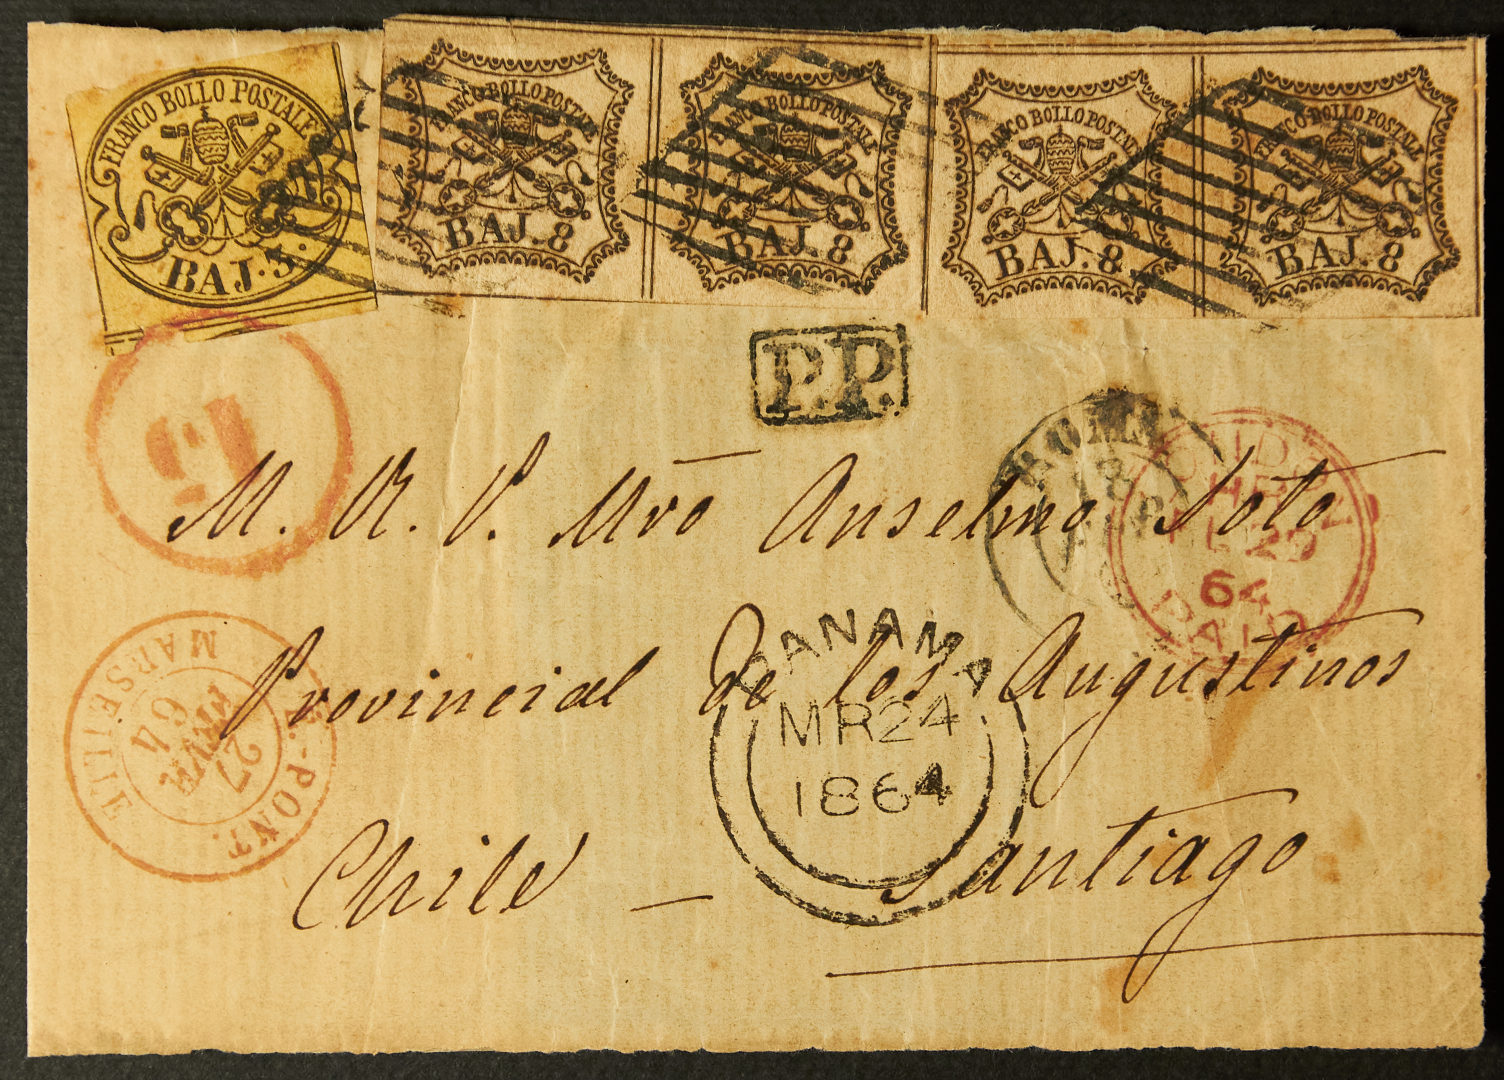 FRANCO BOLLO POSTALE
BAJ. 3.
FRANCO BOLLO POSTALE
BAJ. 8
FRANCO BOLLO POSTALE
BAJ. 8
FRANCO BOLLO POSTALE
BAJ. 8
FRANCO BOLLO POSTALE
BAJ. 8
P.P.
ROMA
18
LONDON
29
64
PAID
M. R. P. Mro Anselmo Soto
Provincial de los Augustinos
Chile – Santiago
PANAMA
MR 24
1864
-PONT.
27
64
MARSEILLE